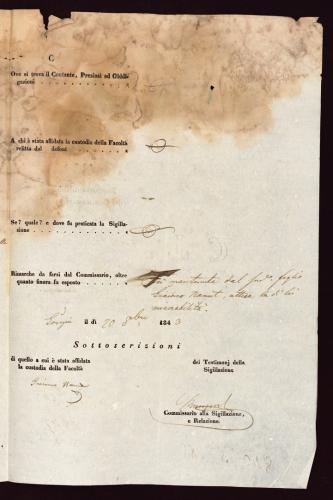 C
Ove si trova il Contante, Preziosi ed Obbli-
gazioni
A chi è stata affidata la custodia della Facoltà
relitta dal defunt
Se? quale? e dove fu praticata la Sigilla-
zione
Rimarche da farsi dal Commissario, oltre
quanto finora fu esposto
del figlio
attesa la di lui
il dì 20 1843
Sottoscrizioni
di quello a cui è stata affidata
la custodia della Facoltà
dei Testimonj della
Sigillazione
Commissario alla Sigillazione,
e Relazione.